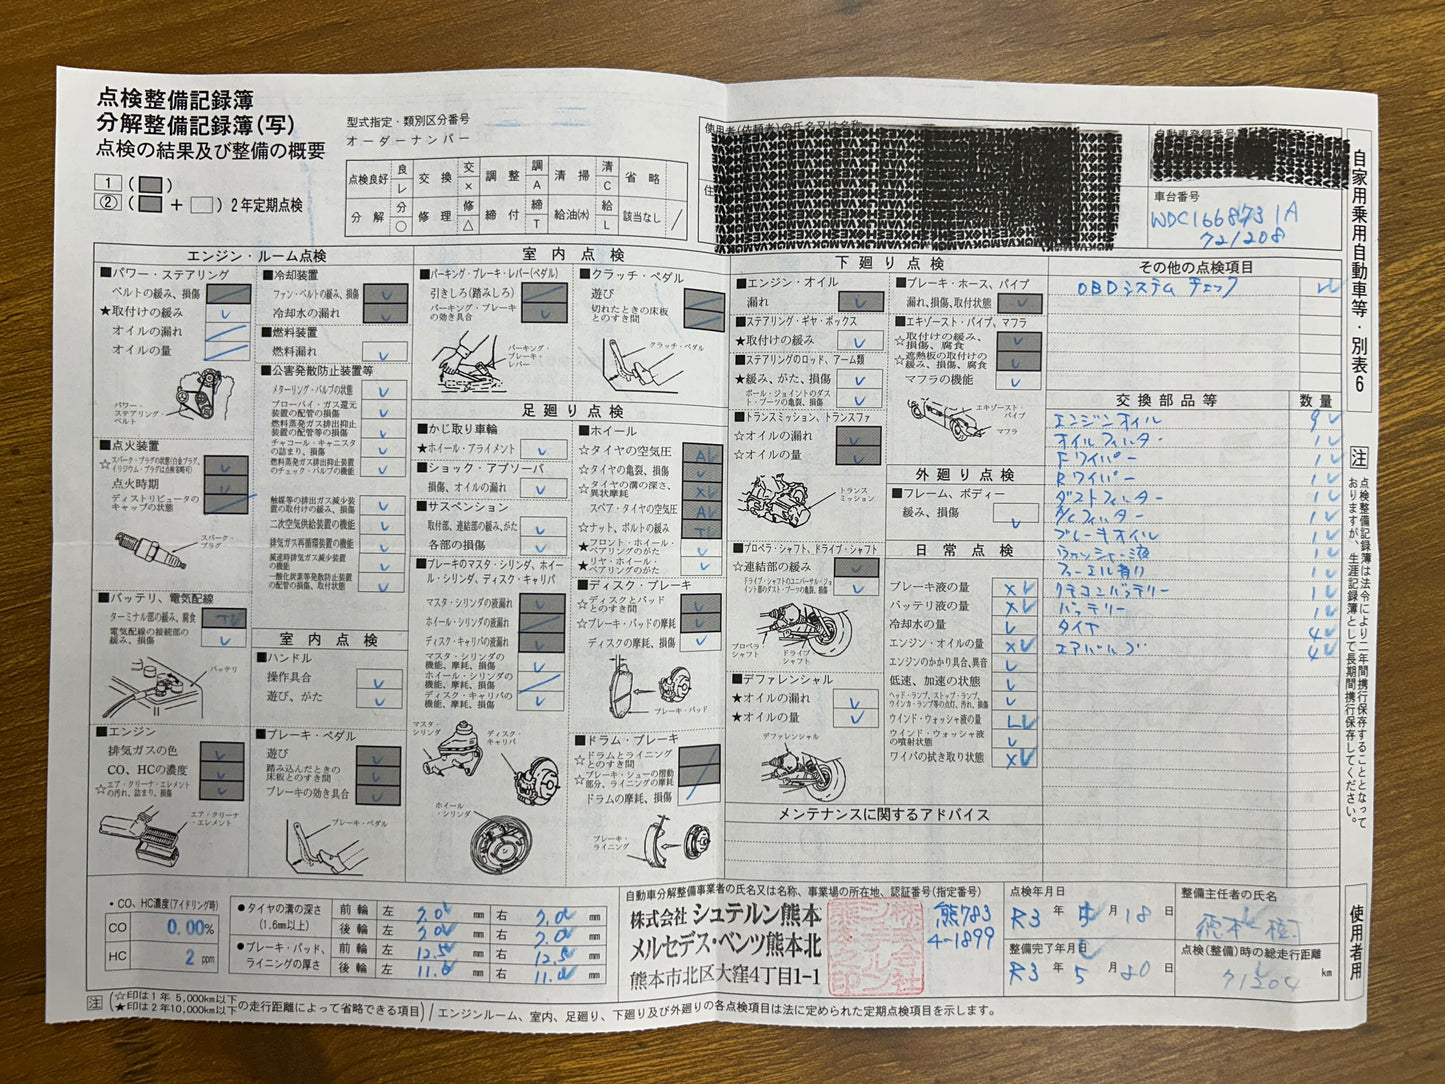 点検整備記録簿
分解整備記録簿(写)
点検の結果及び整備の概要
1 ( )
② ( + ) 2年定期点検
型式指定・類別区分番号
オーダーナンバー
点検良好 良 レ 交換 交 × 調整 調 A 清掃 清 C 省略
分解 分 ○ 修理 修 △ 締付 締 T 給油(水) 給 L 該当なし /
使用者(依頼者)の氏名又は名称
住
自動車登録番号
車台番号
WDC1668731A
721208
自家用乗用自動車等・別表6
エンジン・ルーム点検
■パワー・ステアリング
ベルトの緩み、損傷
★取付けの緩み
オイルの漏れ
オイルの量
パワー・ステアリング・ベルト
■点火装置
☆スパーク・プラグの状態(白金プラグ、イリジウム・プラグは点検省略可)
点火時期
ディストリビュータのキャップの状態
スパーク・プラグ
■バッテリ、電気配線
ターミナル部の緩み、腐食 T
電気配線の接続部の緩み、損傷
バッテリ
■エンジン
排気ガスの色
CO、HCの濃度
☆エア・クリーナ・エレメントの汚れ、詰まり、損傷
エア・クリーナ・エレメント
■冷却装置
ファン・ベルトの緩み、損傷
冷却水の漏れ
■燃料装置
燃料漏れ
■公害発散防止装置等
メターリング・バルブの状態
ブローバイ・ガス還元装置の配管の損傷
燃料蒸発ガス排出抑止装置の配管等の損傷
チャコール・キャニスタの詰まり、損傷
燃料蒸発ガス排出抑止装置のチェック・バルブの機能
触媒等の排出ガス減少装置の取付けの緩み、損傷
二次空気供給装置の機能
排気ガス再循環装置の機能
減速時排気ガス減少装置の機能
一酸化炭素等発散防止装置の配管の損傷、取付状態
室内点検
■ハンドル
操作具合
遊び、がた
■ブレーキ・ペダル
遊び
踏み込んだときの床板とのすき間
ブレーキの効き具合
ブレーキ・ペダル
室内点検
■パーキング・ブレーキ・レバー(ペダル)
引きしろ(踏みしろ)
パーキング・ブレーキの効き具合
パーキング・ブレーキ・レバー
■クラッチ・ペダル
遊び
切れたときの床板とのすき間
クラッチ・ペダル
足廻り点検
■かじ取り車輪
★ホイール・アライメント
■ショック・アブソーバ
損傷、オイルの漏れ
■サスペンション
取付部、連結部の緩み、がた
各部の損傷
■ブレーキのマスタ・シリンダ、ホイール・シリンダ、ディスク・キャリパ
マスタ・シリンダの液漏れ
ホイール・シリンダの液漏れ
ディスク・キャリパの液漏れ
マスタ・シリンダの機能、摩耗、損傷
ホイール・シリンダの機能、摩耗、損傷
ディスク・キャリパの機能、摩耗、損傷
マスタ・シリンダ
ディスク・キャリパ
ホイール・シリンダ
■ホイール
☆タイヤの空気圧 A
☆タイヤの亀裂、損傷
☆タイヤの溝の深さ、異状摩耗 X
スペア・タイヤの空気圧 A
☆ナット、ボルトの緩み T
★フロント・ホイール・ベアリングのがた
★リヤ・ホイール・ベアリングのがた
■ディスク・ブレーキ
☆ディスクとパッドとのすき間
☆ブレーキ・パッドの摩耗
ディスクの摩耗、損傷
ブレーキ・パッド
■ドラム・ブレーキ
☆ドラムとライニングとのすき間
☆ブレーキ・シューの摺動部分、ライニングの摩耗
ドラムの摩耗、損傷
ブレーキ・ライニング
下廻り点検
■エンジン・オイル
漏れ
■ステアリング・ギヤ・ボックス
★取付けの緩み
■ステアリングのロッド、アーム類
★緩み、がた、損傷
ボール・ジョイントのダスト・ブーツの亀裂、損傷
■トランスミッション、トランスファ
☆オイルの漏れ
☆オイルの量
トランスミッション
■プロペラ・シャフト、ドライブ・シャフト
☆連結部の緩み
ドライブ・シャフトのユニバーサル・ジョイント部のダスト・ブーツの亀裂、損傷
プロペラ・シャフト
ドライブ・シャフト
■デファレンシャル
★オイルの漏れ
★オイルの量
デファレンシャル
■ブレーキ・ホース、パイプ
漏れ、損傷、取付状態
■エキゾースト・パイプ、マフラ
☆取付けの緩み、損傷、腐食
☆遮熱板の取付けの緩み、損傷、腐食
マフラの機能
エキゾースト・パイプ
マフラ
外廻り点検
■フレーム、ボディー
緩み、損傷
日常点検
ブレーキ液の量 X
バッテリ液の量 X
冷却水の量
エンジン・オイルの量 X
エンジンのかかり具合、異音
低速、加速の状態
ヘッド・ランプ、ストップ・ランプ、ウインカ・ランプ等の点灯、汚れ、損傷
ウインド・ウォッシャ液の量 L
ウインド・ウォッシャ液の噴射状態
ワイパの拭き取り状態 X
メンテナンスに関するアドバイス
その他の点検項目
OBDシステム チェック
交換部品等 数量
エンジンオイル 9
オイルフィルター 1
Fワイパー 1
Rワイパー 1
ダストフィルター 1
A/Cフィルター 1
ブレーキオイル 1
ウォッシャー液 1
リモコンバッテリー 1
バッテリー 1
タイヤ 4
エアバルブ 4
注 点検整備記録簿は法令により二年間携行保存することとなっておりますが、生涯記録簿として長期間携行保存してください。
使用者用
・CO、HC濃度(アイドリング時)
CO 0.00%
HC 2 ppm
●タイヤの溝の深さ(1.6mm以上)
前輪 左 7.0 mm 右 7.0 mm
後輪 左 7.0 mm 右 7.0 mm
●ブレーキ・パッド、ライニングの厚さ
前輪 左 12.5 mm 右 12.5 mm
後輪 左 11.0 mm 右 11.0 mm
自動車分解整備事業者の氏名又は名称、事業場の所在地、認証番号(指定番号)
株式会社 シュテルン熊本
メルセデス・ベンツ熊本北
熊本市北区大窪4丁目1-1
熊783
4-1899
点検年月日
R3年 5月18日
整備完了年月日
R3年 5月20日
整備主任者の氏名
点検(整備)時の総走行距離
71204 km
注 (☆印は1年 5,000km以下 ★印は2年10,000km以下 の走行距離によって省略できる項目) / エンジンルーム、室内、足廻り、下廻り及び外廻りの各点検項目は法に定められた定期点検項目を示します。